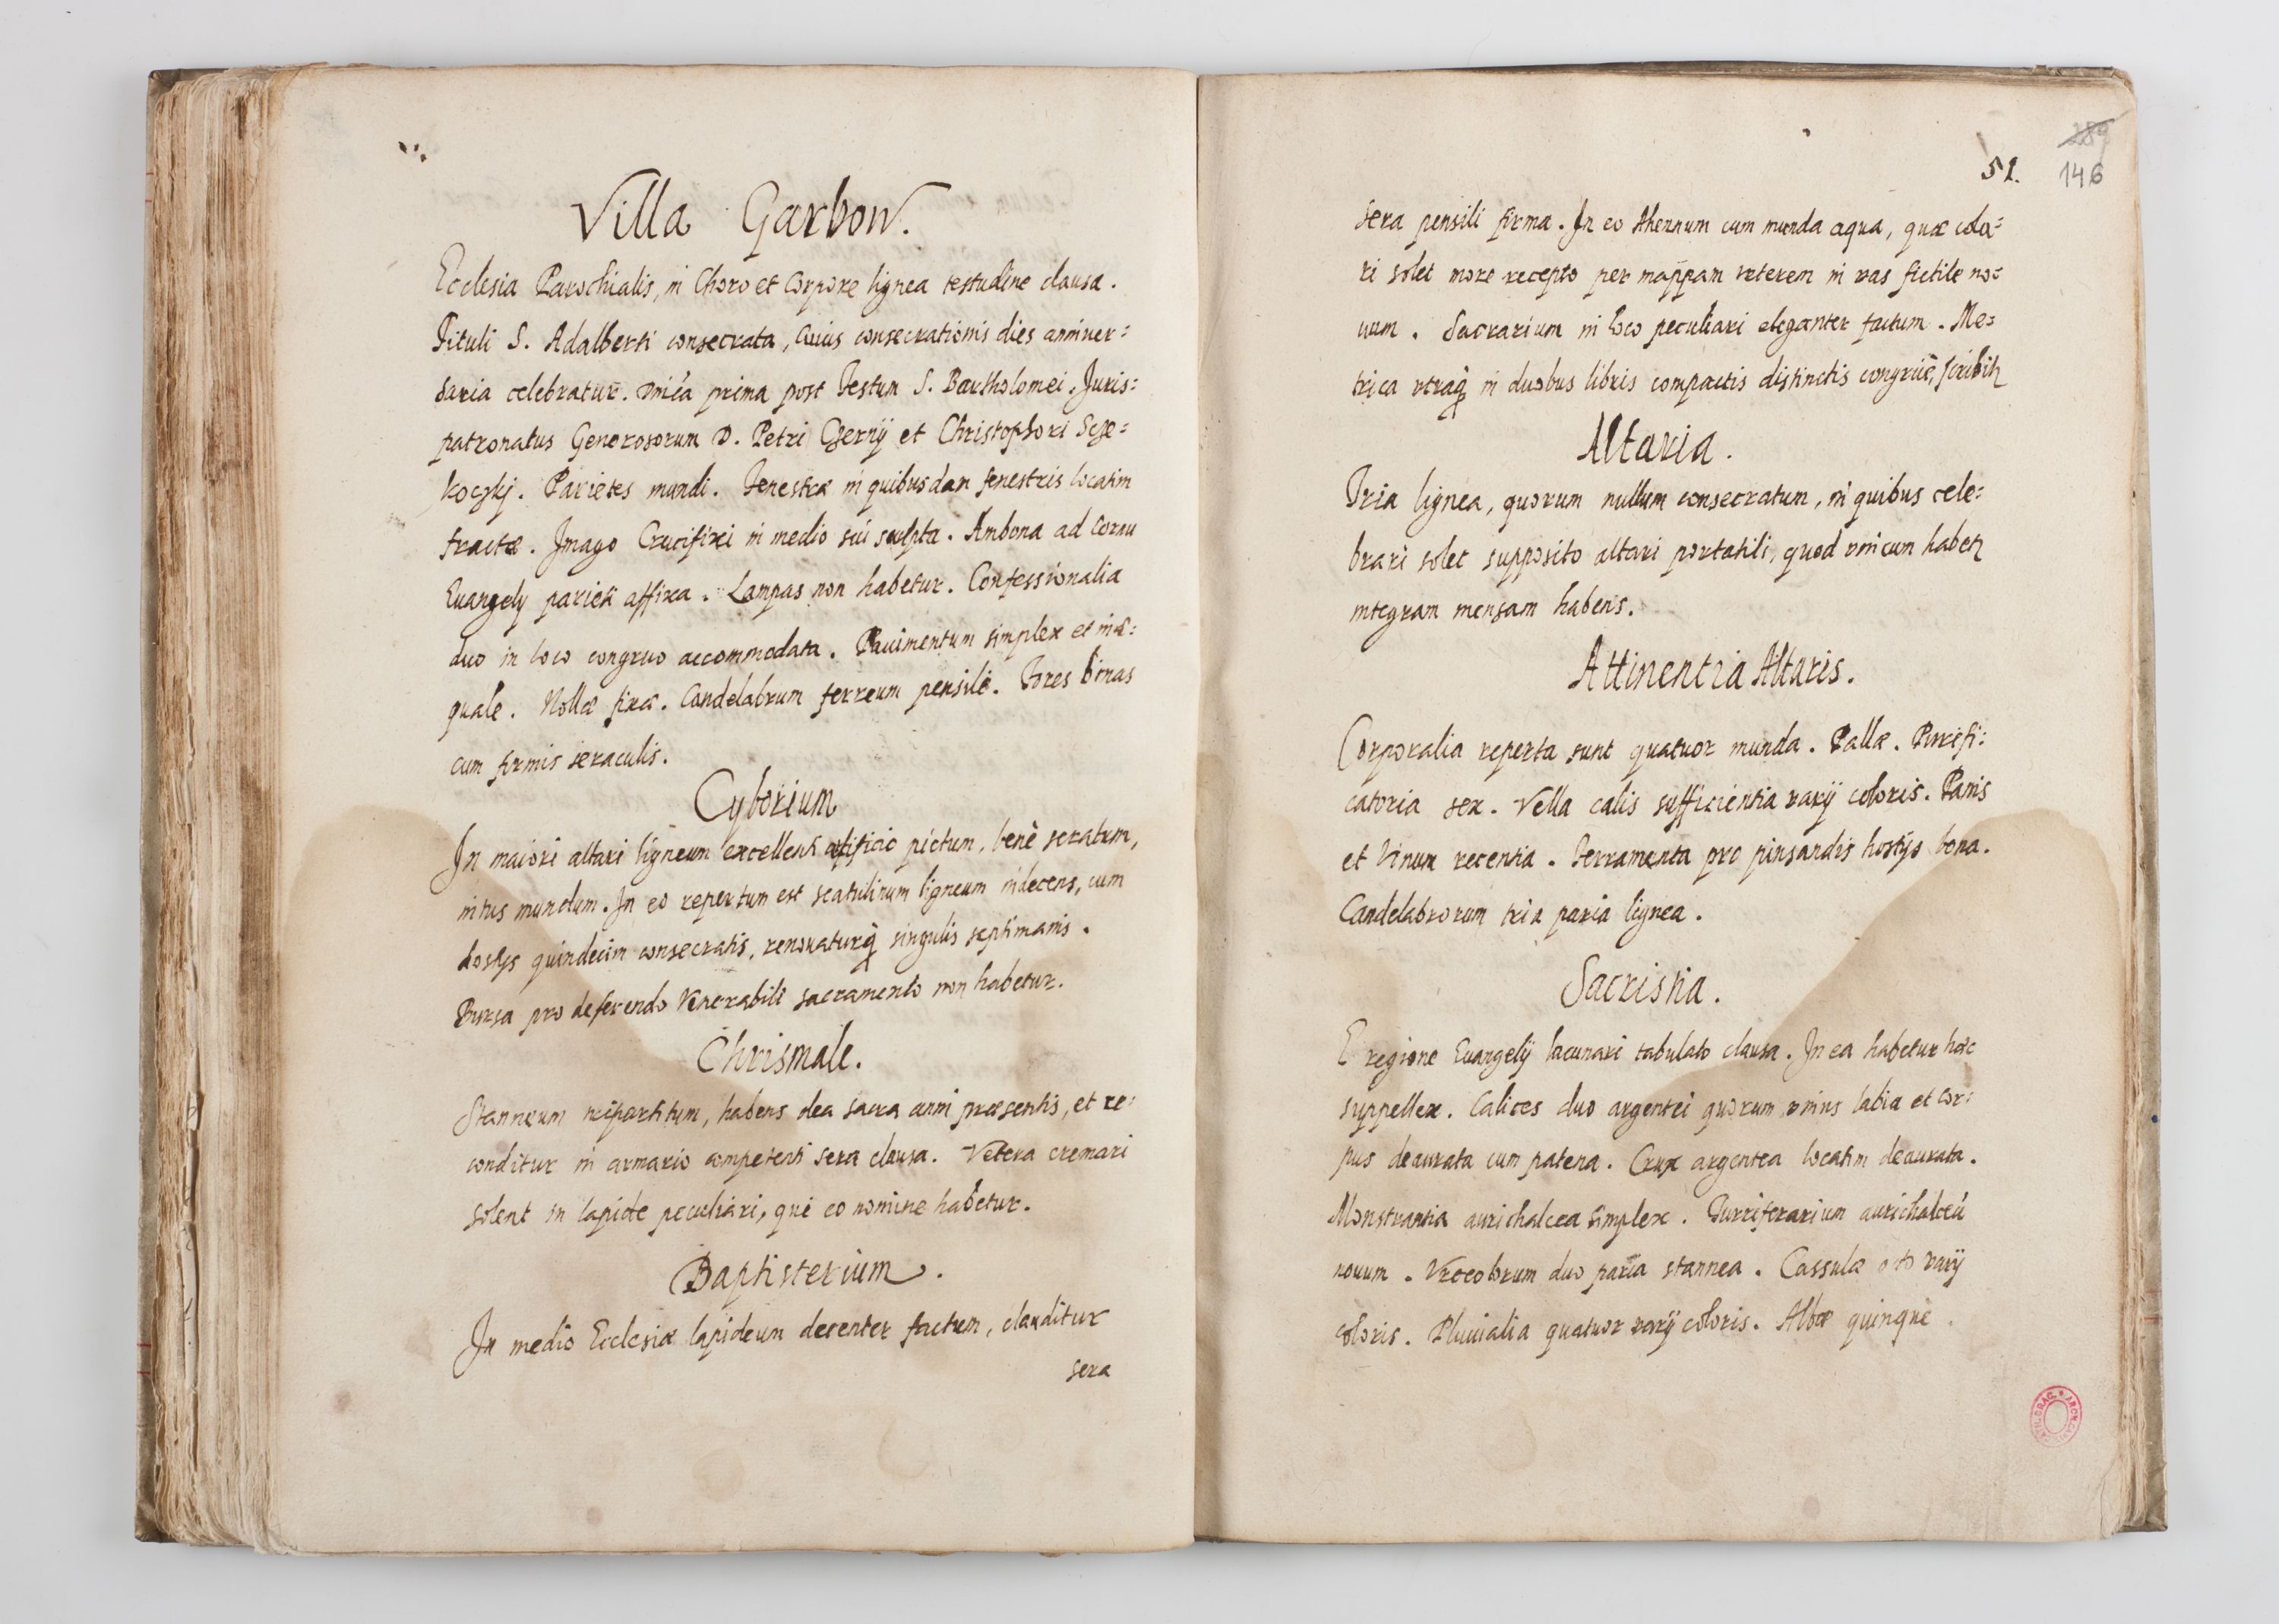 Villa Garbow.
Ecclesia Parochialis, in Choro et Corpore lignea testudine clausa.
Tituli S. Adalberti consecrata, Cuius consecrationis dies anniuer:
saria celebratur. Dnica prima post Festum S. Bartholomei. Juris:
patronatus Generosorum D. Petri Czerny et Christophori Scze:
koczkj. Parietes mundi. Fenestræ in quibusdam fenestris locatim
fractæ. Jmago Crucifixi in medio sui sculpta. Ambona ad Cornu
Euangely parieti affixa. Lampas non habetur. Confessionalia
duo in loco congruo accommodata. Pauimentum simplex et inæ:
quale. Nollæ fixæ. Candelabrum ferreum pensile. Fores binas
cum firmis seraculis.
Cyborium
Jn maiori altari ligneum excellenti artificio pictum, benè seratum,
intus mundum. Jn eo repertum est scatulinum ligneum indecens, cum
hostys quindecim consecratis, renouaturq; singulis septimanis.
Bursa pro deferendo Venerabili sacramento non habetur.
Chrismale.
Stanneum tripartitum, habens olea sacra anni præsentis, et re:
conditur in armario competenti sera clausa. Vetera cremari
solent in lapide peculiari, qui eo nomine habetur.
Baptisterium.
Jn medio Ecclesiæ lapideum decenter factum, clauditur
sera
289
51. 146
sera pensili firma. Jn eo Ahennum cum munda aqua, quæ cola:
ri solet more recepto per mappam veterem in vas fictile no:
uum. Sacrarium in loco peculiari eleganter factum. Me:
trica utraq; in duobus libris compactis distinctis congruè, scribitz
Altaria.
Tria lignea, quorum nullum consecratum, in quibus cele:
brari solet supposito altari portatili, quod vnicum habetz
integram mensam habens.
Attinentia Altaris.
Corporalia reperta sunt quatuor munda. Pallæ. Purifi:
catoria sex. Vella calis sufficientia varij coloris. Panis
et Vinum recentia. Ferramenta pro pinsandis hostijs bona.
Candelabrorum tria paria lignea.
Sacristia.
E regione Euangelij lacunari tabulato clausa. Jn ea habetur hæc
suppellex. Calices duo argentei quorum vnius labia et cor:
pus deaurata cum patena. Crux argentea locatim deaurata.
Monstrantia aurichalcea simplex. Turriferarium aurichalceũ
nouum. Vrceolorum duo paria stannea. Cassulæ octo varij
coloris. Pluuialia quatuor varij coloris. Albæ quinque